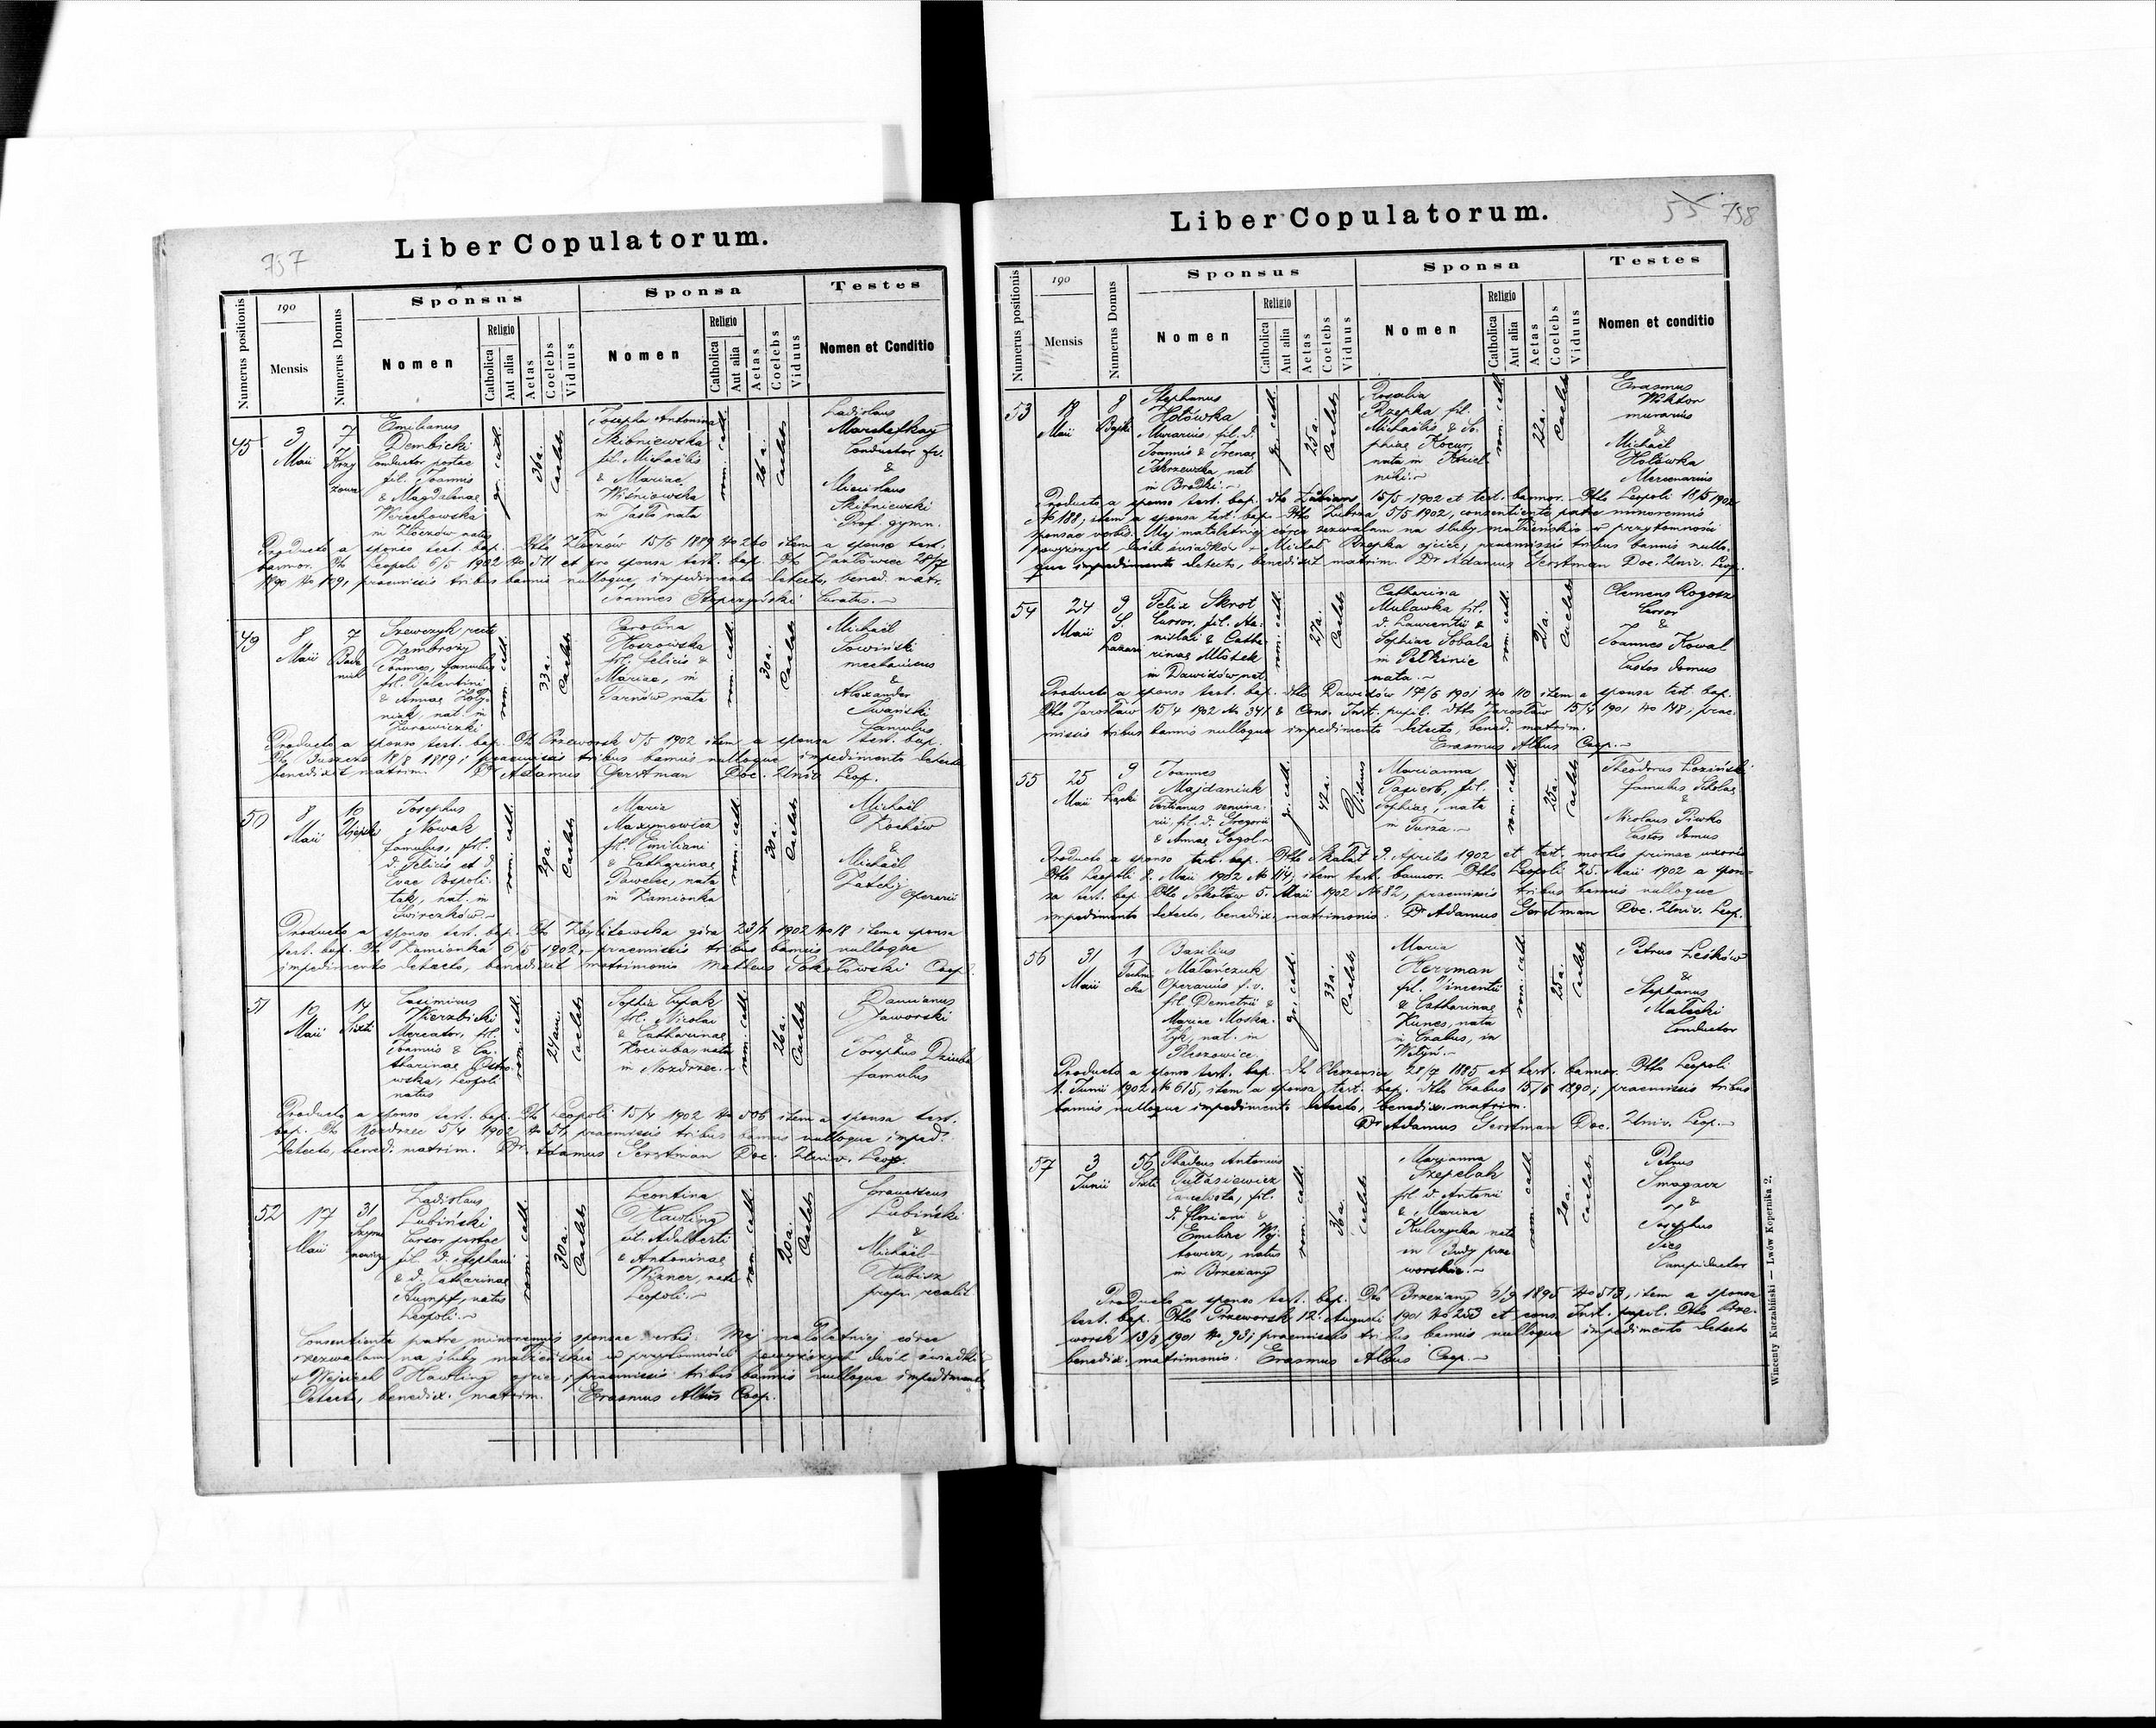 757
Liber Copulatorum.
Numerus positionis
190
Mensis
Numerus Domus
Sponsus
Nomen
Religio
Catholica
Aut alia
Aetas
Coelebs
Viduus
Sponsa
Nomen
Religio
Catholica
Aut alia
Aetas
Coelebs
Viduus
Testes
Nomen et Conditio
3
Maii
7
Emilianus
Dembicki
Conductor postae
fil. Joannis
& Magdalenae
Werechowska
in Złoczów natus
gr. cath.
36 a.
Caelebs
Josepha Antonina
Skibniewska
fil. Michaëlis
& Mariae
Wiśniowska
in Jasło nata
rom. cath.
26 a.
Caelebs
Ladislaus
Marschelkay
Conductor
&
Miecislaus
Skibniewski
Prof. gymn.
Producto a sponso test. bap. Dtto Złoczów 15/6 1889 No item a sponso test.
bannor. Leopoli 6/5 1902 et pro sponsa test. bap.
praemissis tribus bannis nulloque impedimento detecto, bened. matr.
Joannes Curatus.
49
8
Maii
7
Szewczyk recte
Joannes, famulus
fil. Valentini
& Annae
nat. in
rom. cath.
33 a.
Caelebs
Carolina
Hoszowska
fil. Felicis &
Mariae, in
Tarnów, nata
rom. cath.
30 a.
Caelebs
Michaël
Sowiński
mechanicus
&
Alexander
Iwański
famulus
Producto a sponso test. bap. Przeworsk 5/5 1902 item a sponsa test. bap.
praemissis tribus bannis nulloque impedimento detecto
benedixit matrim. Dr Adamus Gerstman Doc. Univ. Leop.
50
8
Maii
10
Josephus
Nowak
famulus, fil.
d. Felicis et d.
Evae Pospoli-
tak, nat. in
Świrczków
rom. cath.
29 a.
Caelebs
Maria
Maxymowicz
fil. Emiliani
& Catharinae
Pawelec, nata
in Kamionka
rom. cath.
30 a.
Caelebs
Michaël
Rochów
&
Michaël
operarii
Producto a sponso test. bap. Zbylitowska góra 1902 No 18 item a sponsa
test. bap. Kamionka 6/5 1902, praemissis tribus bannis nulloque
impedimento detecto, benedixit matrimonio Matheus Sokołowski Coop.
51
10
Maii
14
Sixti
Casimirus
Wierzbicki
Mercator, fil.
Joannis & Ca-
tharinae Ostro-
wska, Leopoli
natus
rom. cath.
24 an.
Caelebs
Sophia
fil. Nicolai
& Catharinae
Kociuba, nata
in Nozdrzec
rom. cath.
26 a.
Caelebs
Damianus
Jaworski
&
Josephus Dziuba
famulus
Producto a sponso test. bap. Leopoli 15/4 1902 No 506 item a sponsa test.
bap. Nozdrzec 5/4 1902 No 51, praemissis tribus bannis nulloque imped.
detecto, bened. matrim. Dr Adamus Gerstman Doc. Univ. Leop.
52
17
Maii
31
Ladislaus
Lubiński
Cursor postae
fil. d. Stephani
& d. Catharinae
Stumpf, natus
Leopoli
rom. cath.
30 a.
Caelebs
Leontina
Hawling
fil. Adalberti
& Antoninae
Wizner, nata
Leopoli
rom. cath.
20 a.
Caelebs
Franciscus
Lubiński
&
Michaël
Hubisz
propr. realit
Consentiente patre minorennis sponsae verbis: Mej małoletniej córce
zezwalam na śluby małżeńskie w przytomności powyższych dwóch świadków
+ Wojciech Hawling ojciec; praemissis tribus bannis nulloque impedimento
detecto, benedix. matrim. Erasmus Albus Coop.
55 758
Liber Copulatorum.
Numerus positionis
190
Mensis
Numerus Domus
Sponsus
Nomen
Religio
Catholica
Aut alia
Aetas
Coelebs
Viduus
Sponsa
Nomen
Religio
Catholica
Aut alia
Aetas
Coelebs
Viduus
Testes
Nomen et conditio
53
18
Maii
8
Bajki
Stephanus
Hołówka
Murarius, fil. d.
Joannis & Irenae
Iskrzewska nat
in Brodki
gr. cath.
25 a.
Caelebs
Rosalia
Rzepka fil.
Michaëlis & So-
phiae Kocur,
nata in Koziel-
niki
rom. cath.
22 a.
Caelebs
Erasmus
Wiktor
murarius
&
Michaël
Hołówka
Mercenarius
Producto a sponso test. bap. dto 15/5 1902 et test. bannor. Dtto Leopoli 18/5 1902
No 188; item a sponsa test. bap. Dtto Zubrza 5/5 1902, consentiente patre minorennis
sponsae verbis: Mej małoletniej córce zezwalam na śluby małżeńskie w przytomności
powyższych dwóch świadków + Michał Rzepka ojciec; praemissis tribus bannis nullo-
que impedimento detecto, benedixit matrim. Dr Adamus Gerstman Doc. Univ. Leop.
54
24
Maii
9
S.
Lazari
Felix Skrot
Cursor, fil. Sta-
nislai & Catha-
rinae Młotek
in Dawidów nat
rom. cath.
27 a.
Caelebs
Catharina
Mulawka fil.
d. Laurentii &
Sophiae Sobala
in Pełkinie
nata
rom. cath.
21 a.
Caelebs
Clemens Rogosz
Cursor
&
Joannes Kowal
Custos domus
Producto a sponso test. bap. dtto Dawidów 1901 No 110 item a sponsa test. bap.
Dtto Jarosław 15/4 1902 No 341 & Cons. Inst. pupil. dtto Jarosław 15/4 1901 No 148; prae-
missis tribus bannis nulloque impedimento detecto, bened. matrim.
Erasmus Albus Coop.
55
25
Maii
9
Łącki
Joannes
Majdaniuk
Tertianus semina-
rii, fil. d. Gregorii
& Annae Gogol
gr. cath.
42 a.
Viduus
Marianna
Papierb, fil.
Sophiae, nata
in Turza
rom. cath.
25 a.
Caelebs
Theodorus Łoziński
famulus Scholae
&
Nicolaus Piwko
Custos domus
Producto a sponso test. bap. Dtto Skałat 9. Aprilis 1902 et test. mortis primae uxoris
Dtto Leopoli 8. Maii 1902 No 114, item test. bannor. Dtto Leopoli 25. Maii 1902 a spon-
sa test. bap. Dtto Sokołów 5. Maii 1902 No 82, praemissis tribus bannis nulloque
impedimento detecto, benedix. matrimonio: Dr Adamus Gerstman Doc. Univ. Leop.
56
31
Maii
1
Basilius
Matańczuk
Operarius f. v.
fil. Demetrii &
Mariae Moska-
lyk, nat. in
Pleszowice
gr. cath.
33 a.
Caelebs
Maria
Herrman
fil. Vincentii
& Catharinae
Kunes, nata
in Crabus, in
Wołyń
rom. cath.
25 a.
Caelebs
Petrus Leśków
&
Stephanus
Małecki
Conductor
Producto a sponso test. bap. dtto 28/7 1885 et test. bannor. Dtto Leopoli
1. Junii 1902 No 615, item a sponsa test. bap. dtto Crabus 15/6 1890; praemissis tribus
bannis nulloque impedimento detecto, benedix. matrim.
Dr Adamus Gerstman Doc. Univ. Leop.
57
3
Junii
56
Sixti
Thadeus Antonius
Tułasiewicz
Cancelista, fil.
d. Floriani &
Emiliae Woj-
towicz, natus
in Brzeżany
rom. cath.
36 a.
Caelebs
Marianna
Szepelak
fil. d. Antonii
& Mariae
Kulczycka nata
in Gudy prze-
worskie
rom. cath.
20 a.
Caelebs
Petrus
Smagacz
&
Josephus
Sies
Campiductor
Producto a sponso test. bap. Dtto Brzeżany 6/9 1895 No 513, item a sponsa
test. bap. Dtto Przeworsk 12. Augusti 1901 No 253 et cons. Inst. pupil. Dtto Prze-
worsk 13/8 1901 No 93; praemissis tribus bannis nulloque impedimento detecto
benedix. matrimonio: Erasmus Albus Coop.
Wincenty Kuczabiński — Lwów Kopernika 2.